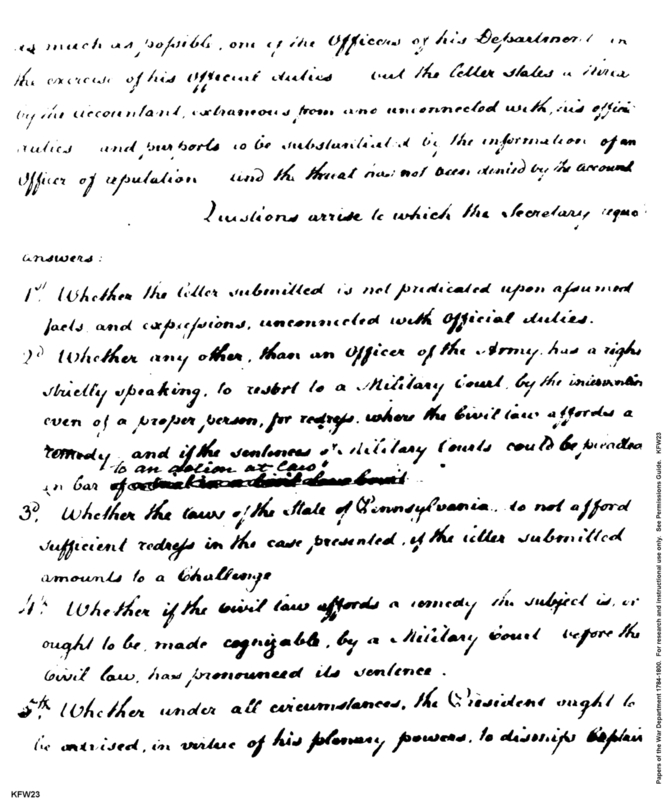 as much as possible, one of the Officers of his Department in
the exercise of his official duties but the letter states a threat
by the accountant, extraneous from and unconnected with, his offici
duties and purports to be substantiated by the information of an
Officer of reputation and the threat has not been denied by the account
Questions arise to which the Secretary reque
answers:
1st. Whether the letter submitted is not predicated upon assumed
facts and expressions, unconnected with Official duties.
2d Whether any other, than an Officer of the Army, has a right
strictly speaking, to resort to a Military Court, by the intervention
even of a proper person, for redress, where the Civil law affords a
remedy and if the sentences of Military Courts could be pleaded
to an action at law?
in bar
3d. Whether the laws of the State of Pennsylvania, do not afford
sufficient redress in the case presented, if the letter submitted
amounts to a Challenge
4th. Whether if the civil law affords a remedy the subject is, or
ought to be, made cognizable, by a Military Court before the
Civil law, has pronounced its sentence.
5th. Whether under all circumstances, the President ought to
be advised, in virtue of his plenary powers, to dismiss Captain
KFW23
Papers of the War Department 1784-1800. For research and instructional use only. See Permissions Guide. KFW23